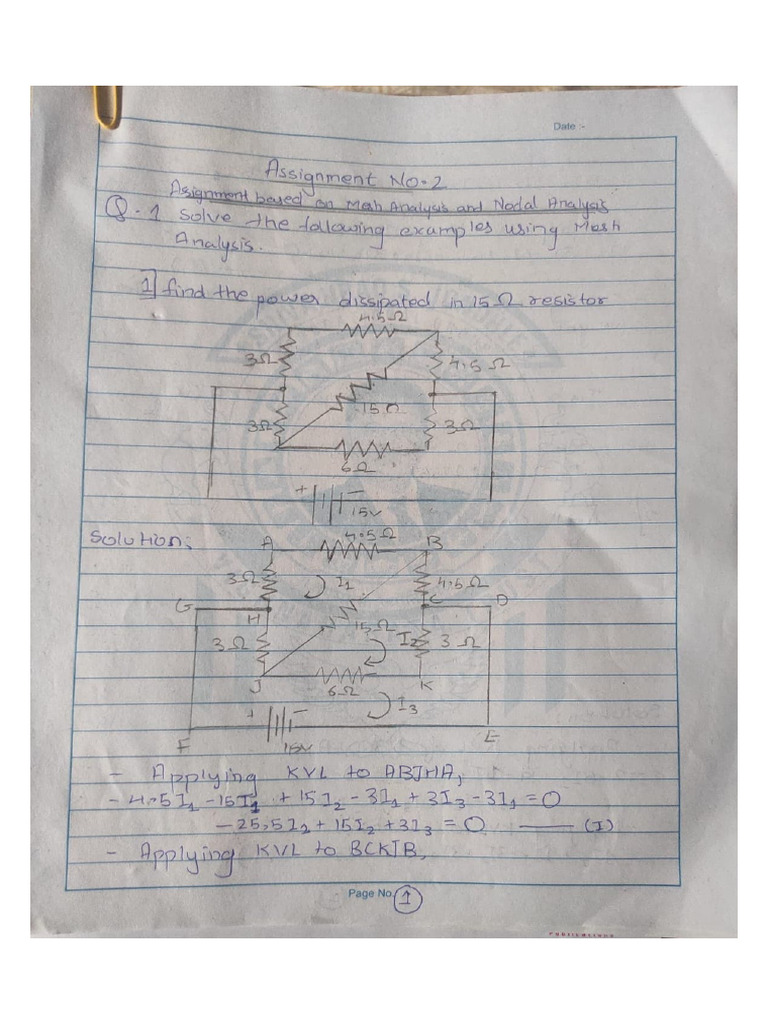 Date :-
Assignment No.2
Asignment based on Mesh Analysis and Nodal Analysis
Q.1 Solve the following examples using Mesh
Analysis.
1] find the power dissipated in 15Ω resistor
4.5Ω
3Ω
4.5Ω
15Ω
3Ω
3Ω
6Ω
+ -
15V
Solution:
A 4.5Ω B
3Ω I₁ 4.5Ω
G C D
H 15Ω
3Ω I₂ 3Ω
J 6Ω K
I₃
+ -
F 15V E
- Applying KVL to ABJHA,
- 4.5I₁ - 15I₁ + 15I₂ - 3I₁ + 3I₃ - 3I₁ = 0
- 25.5I₁ + 15I₂ + 3I₃ = 0 —— (I)
- Applying KVL to BCKJB,
Page No. 1